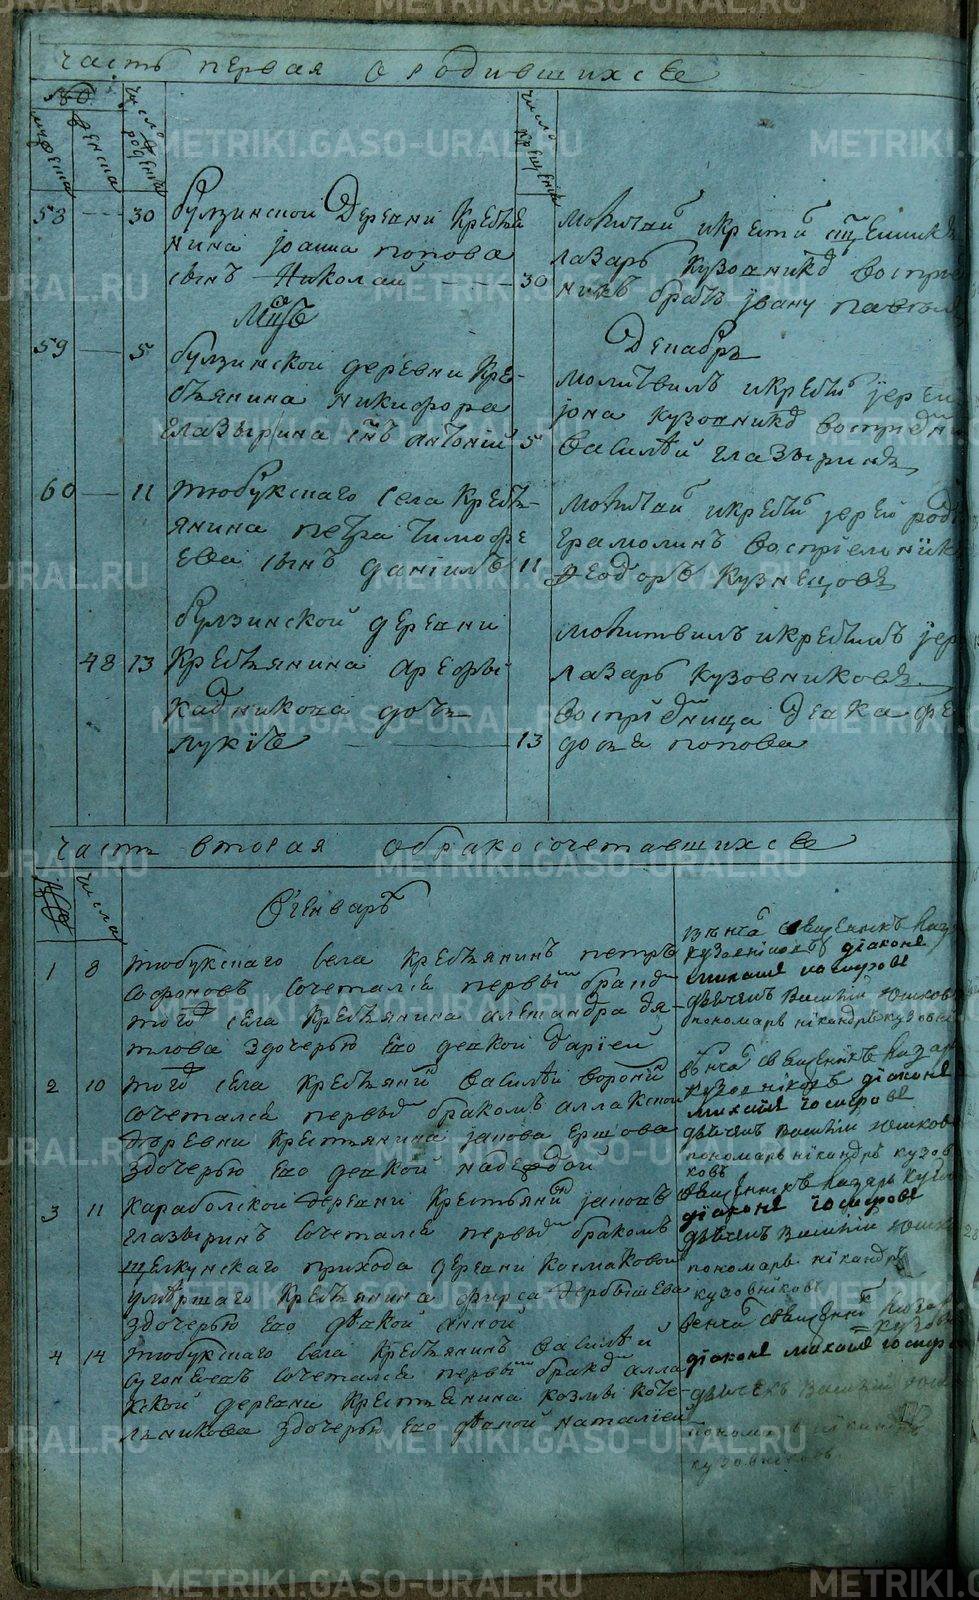 часть первая о родившихсѧ
число рождениѧ
число крещениѧ
58 30 булзинской деревни крестья
нина iоанна попова
сынъ Николай 30
молитвилъ и крестилъ священникъ
лазарь кузовниковъ воспрiем
никъ братъ iвану
Мцъ Декабрь
59 5 булзинской деревни кре-
стьянина никифора
глазырина сынъ антонiй 5
молитвилъ и крестилъ iерей
iона кузовниковъ воспрiемни
василѣй глазыринъ
60 11 тюбукскаго села кресть-
янина петра тимофе
ева сынъ данiилъ 11
молитвилъ и крестилъ iерей
ермолинъ воспрiемникъ
феодоръ кузнецовъ
булзинской деревни
48 13 крестьянина арефы
кадникова дочь
лукiѣ 13
молитвилъ и крестилъ iер
лазарь кузовниковъ
воспрiемница девка фе
досѣя попова
часть вторая о бракосочетавшихсѧ
число
Генварь
1 8 тюбукскаго села крестьянинъ петръ
софроновъ сочеталсѧ первымъ бракомъ
того села крестьянина александра дя-
тлова здочерью его девкой дарiей
венчалъ священникъ лазарь
кузовниковъ дiаконъ
михаилъ
дьячекъ василiй юшковъ
пономарь никандръ кузовни
2 10 того села крестьянинъ василѣй воронинъ
сочеталсѧ первымъ бракомъ аллакской
деревни крестьянина iакова ершова
здочерью его девкой надеждой
венчалъ священникъ лазарь
кузовниковъ дiаконъ
михаилъ
дьячекъ василiй юшковъ
пономарь никандръ кузовни
ковъ
3 11 караболской деревни крестьянинъ iаковъ
глазыринъ сочеталсѧ первымъ бракомъ
щелкунскаго прихода деревни космаковой
умѣршаго крестьянина фирса дербышева
здочерью его дѣвкой анной
священникъ лазарь кузов
дiаконъ
дьячекъ василiй юшков
пономарь никандръ
кузовниковъ
4 14 тюбукскаго села крестьянинъ василѣй
сочеталсѧ первымъ бракомъ алла
кской деревни крестьянина козмы коче-
льникова здочерью его дѣвкой наталiей
венчалъ священникъ лазарь
кузов
дiаконъ михаилъ
дьячекъ василiй
пономарь никандръ
кузовниковъ
METRIKI.GASO-URAL.RU